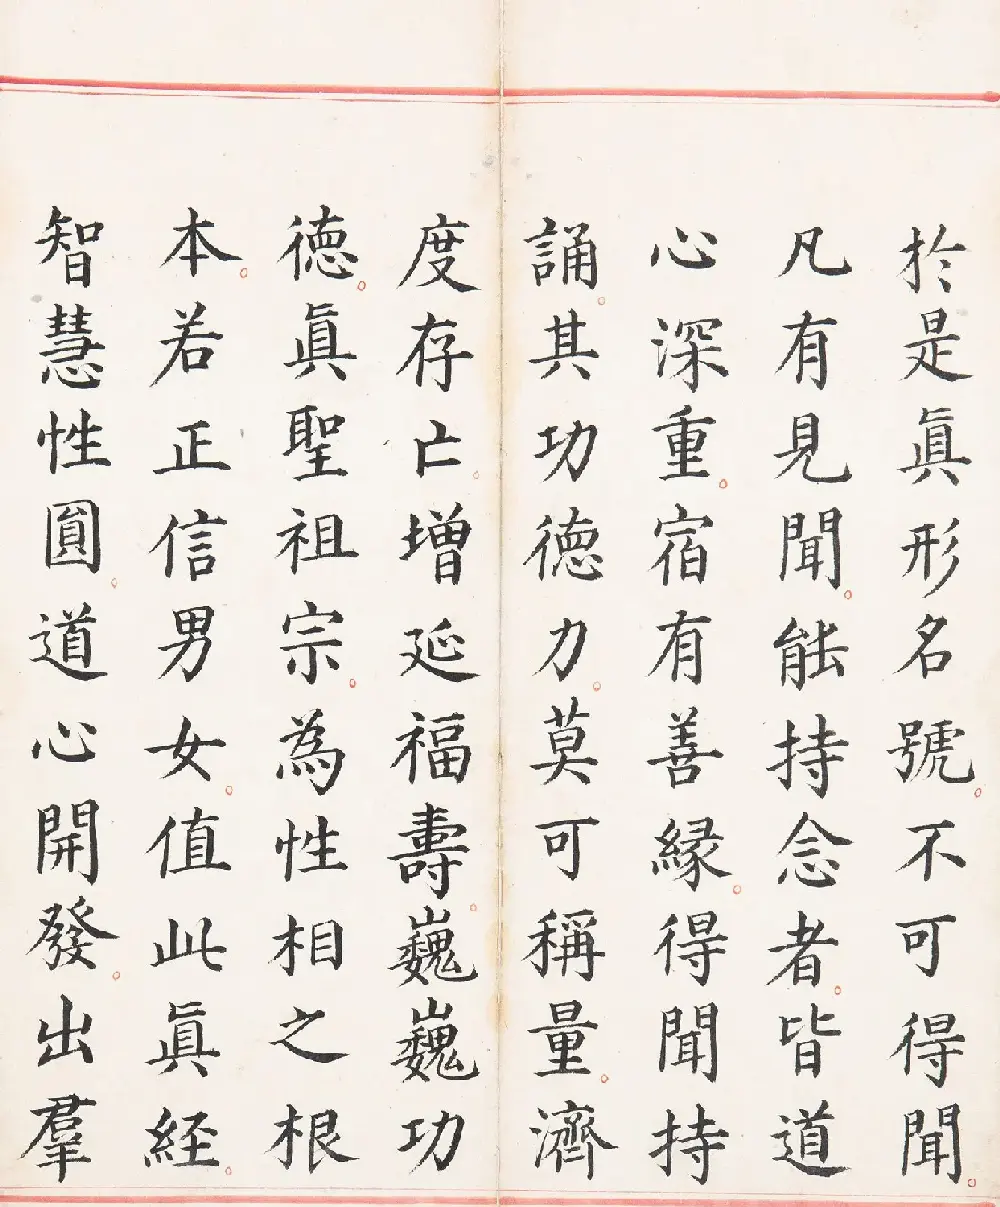 於是眞形名號不可得聞
凡有見聞能持念者皆道
心深重宿有善縁得聞持
誦其功德力莫可稱量濟
度存亡增延福壽巍巍功
德眞聖祖宗為性相之根
本若正信男女值此眞経
智慧性圓道心開發出羣